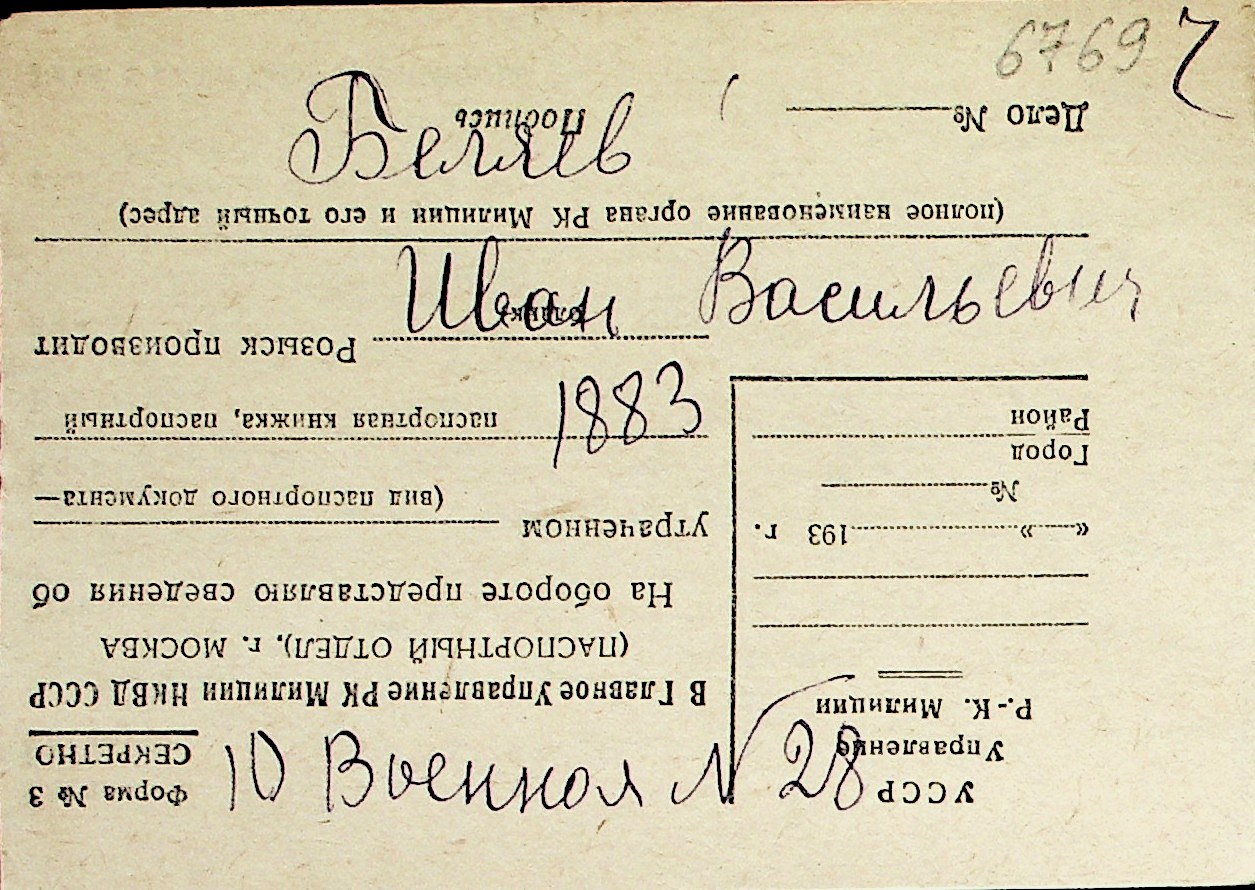 6769 ч
Беляев
Иван Васильевич
1883
10 Военная N 28
УССР
Управление
Р.-К. Милиции
«——»————193 г.
№
Город
Район
Форма № 3
СЕКРЕТНО
В Главное Управление РК Милиции НКВД СССР
(ПАСПОРТНЫЙ ОТДЕЛ), г. МОСКВА
На обороте представляю сведения об
утраченном
(вид паспортного документа—
паспортная книжка, паспортный
Розыск производит
(полное наименование органа РК Милиции и его точный адрес)
Дело №
Подпись